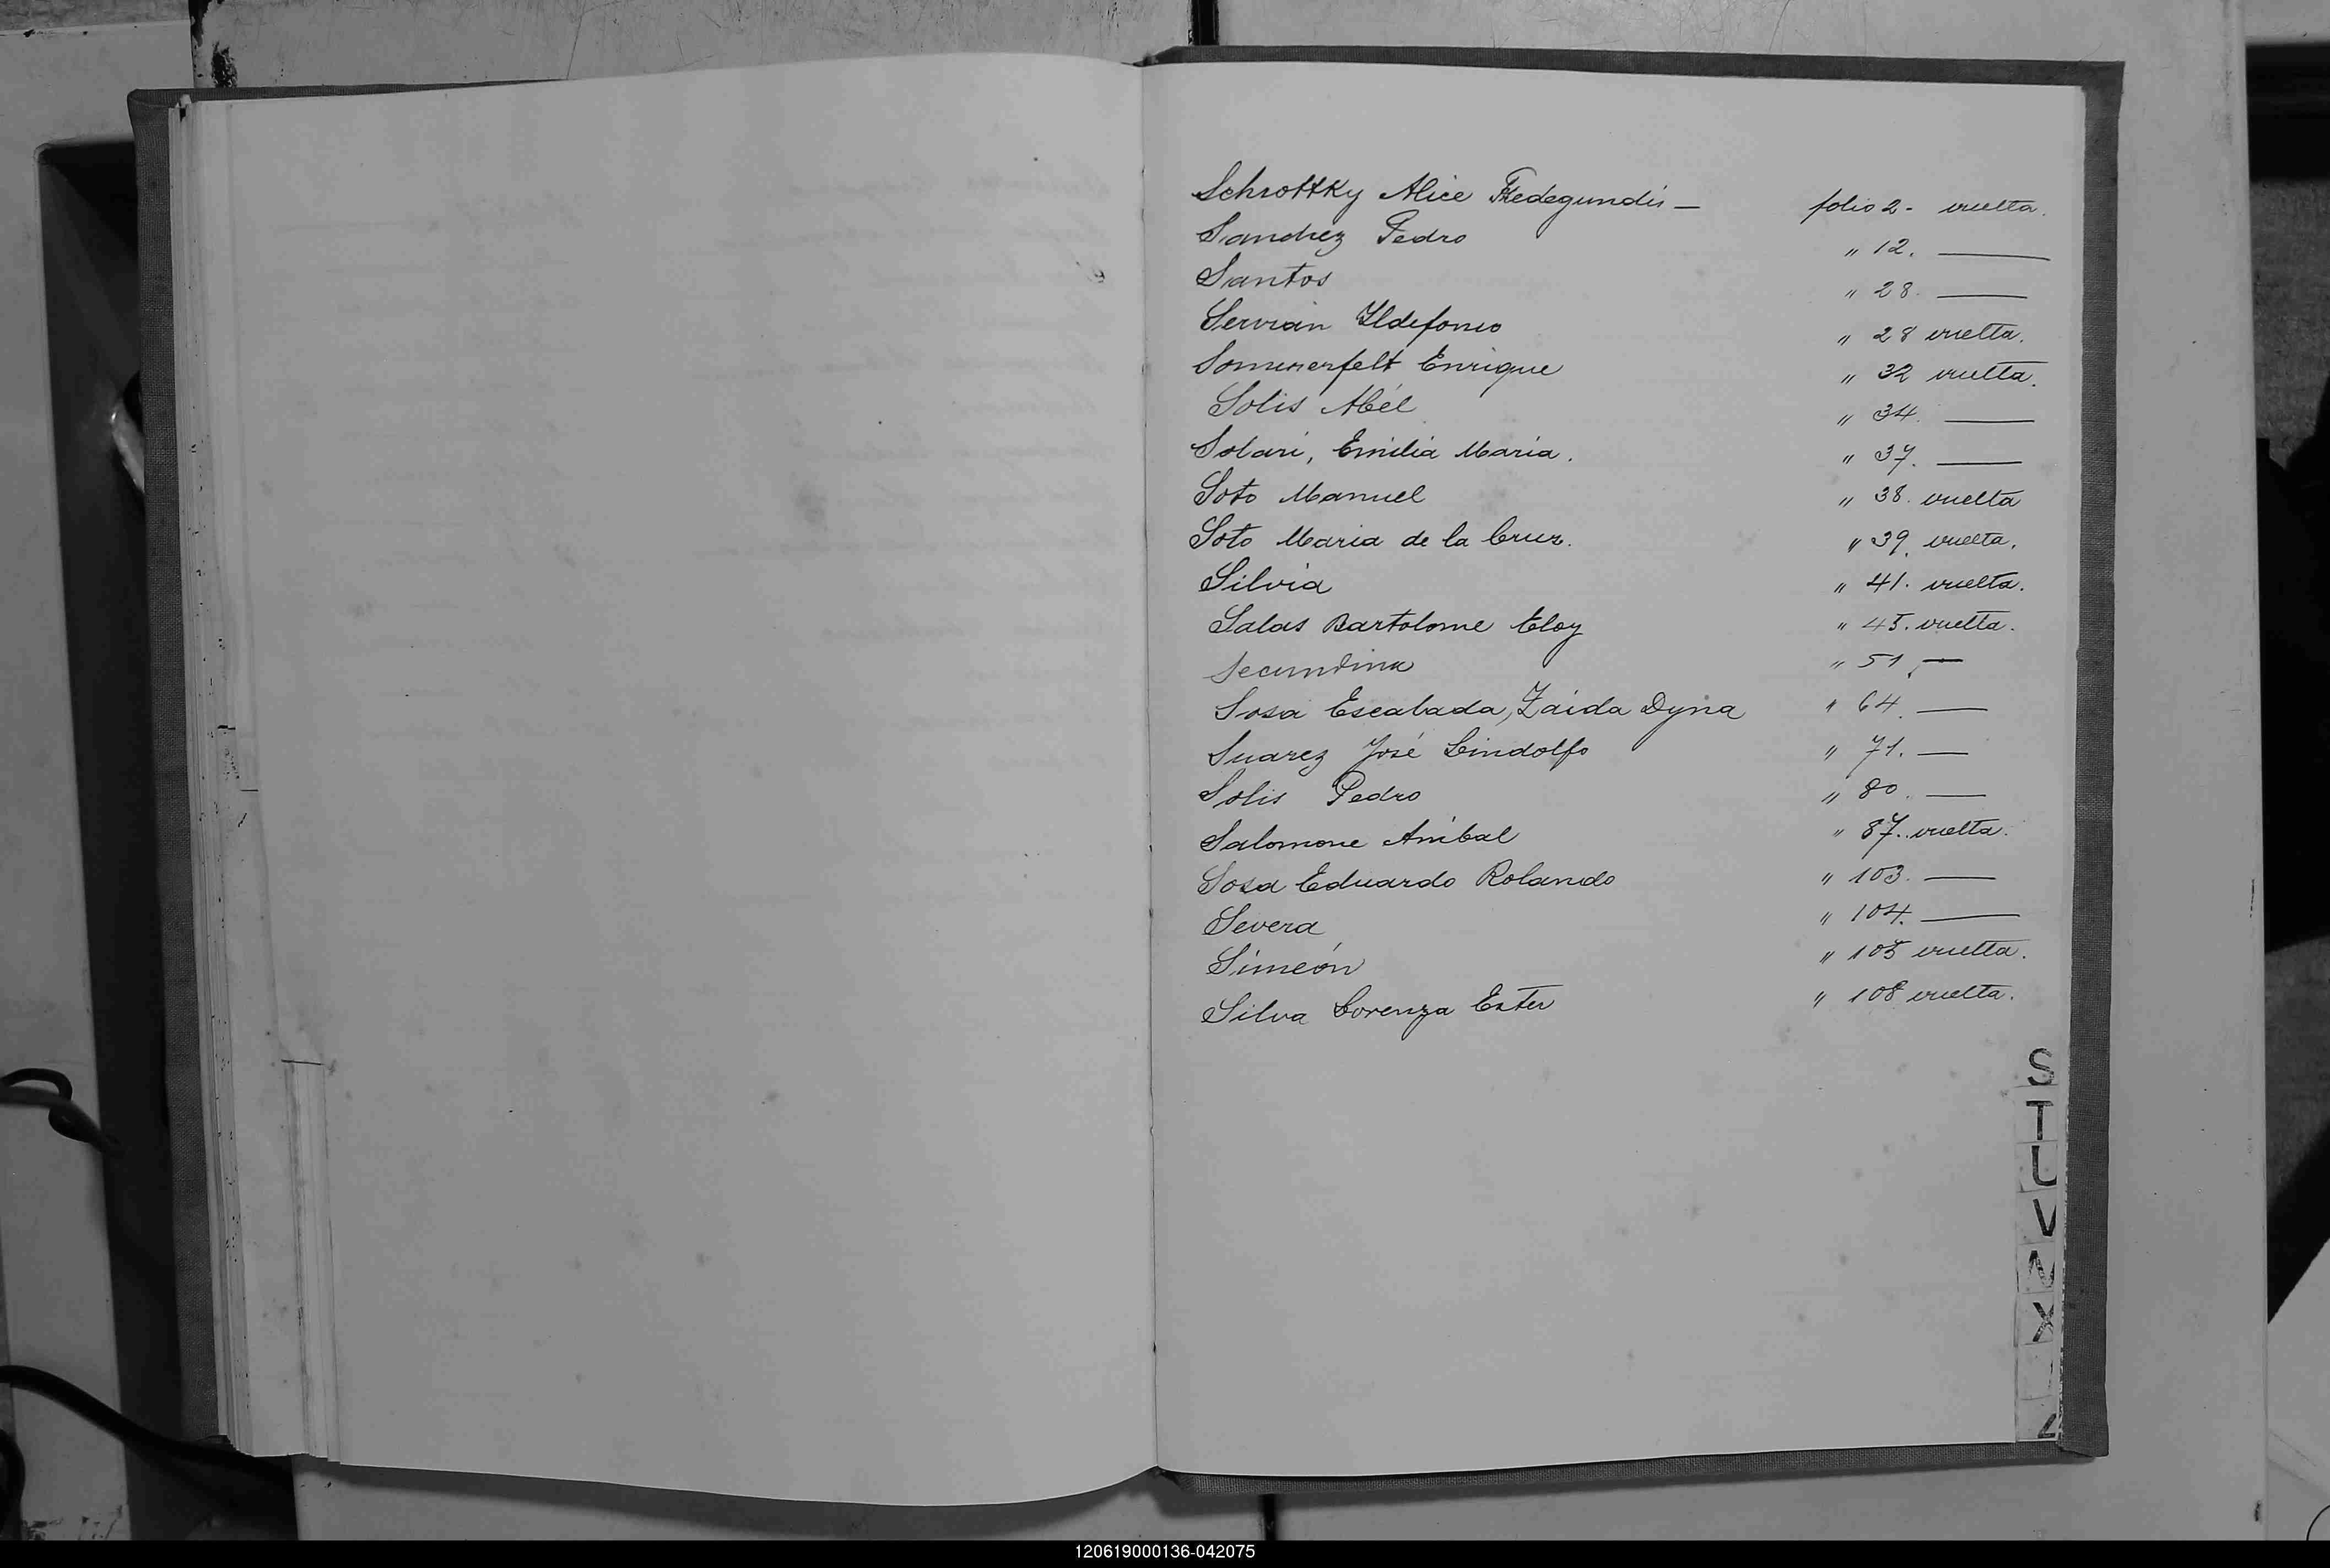 Schrottky Alice Fredegundis — folio 2 - vuelta.
Sanchez Pedro " 12. ——
Santos " 28. ——
Servian Ildefonso " 28 vuelta.
Sommerfelt Enrique " 32 vuelta.
Solis Abél " 34. ——
Solari, Emilia Maria. " 37. ——
Soto Manuel " 38. vuelta
Soto Maria de la Cruz. " 39. vuelta.
Silvia " 41. vuelta.
Salas Bartolome Eloy " 45. vuelta.
Secundina " 51. —
Sosa Escalada, Zaida Dyna " 64. ——
Suarez José Lindolfo " 71. —
Solis Pedro " 80. ——
Salomone Anibal " 87. vuelta.
Sosa Eduardo Rolando " 103. ——
Severa " 104. ——
Simeón " 105 vuelta.
Silva Lorenza Ester " 108 vuelta.
S
T
U
V
X
Z
120619000136-042075